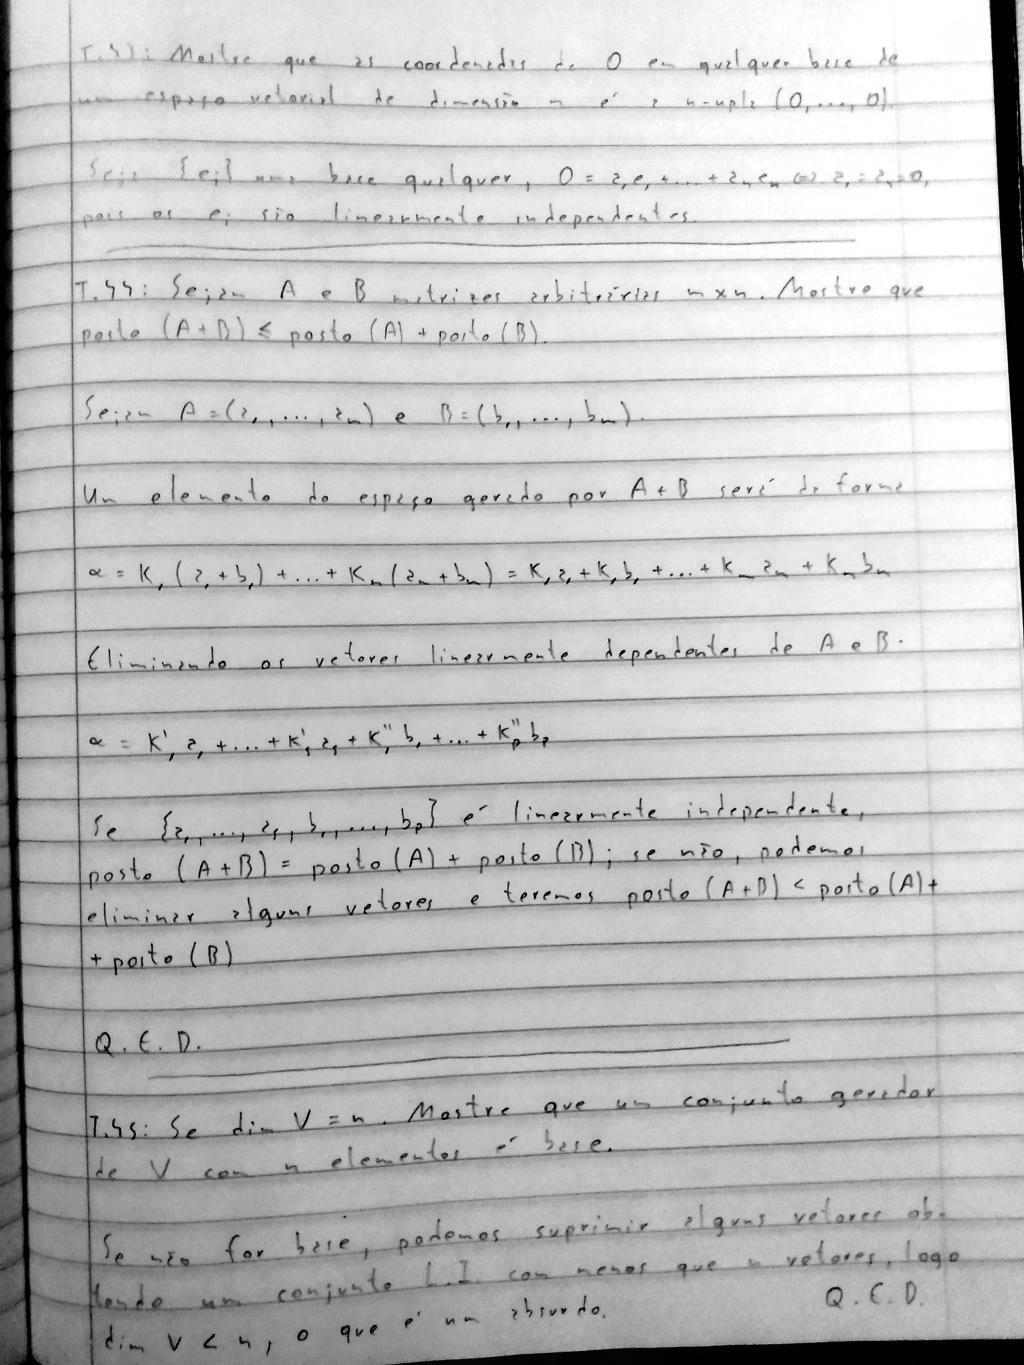 Mostre que as coordenadas de 0 em qualquer base de
um espaço vetorial de dimensão n é a n-upla (0,...,0).
Seja {ei} uma base qualquer, 0 = a₁e₁+...+aₙeₙ <=> a₁=aₙ=0,
pois os ei são linearmente independentes.
T.44: Sejam A e B matrizes arbitrárias m×n. Mostre que
posto (A+B) ≤ posto (A) + posto (B).
Sejam A=(a₁,...,aₙ) e B=(b₁,...,bₙ).
Um elemento do espaço gerado por A+B será da forma
α = K₁(a₁+b₁)+...+Kₙ(aₙ+bₙ) = K₁a₁+K₁b₁+...+Kₙaₙ+Kₙbₙ
Eliminando os vetores linearmente dependentes de A e B.
α = K'₁a₁+...+K'ₛaₛ+K''₁b₁+...+K''ₚbₚ
Se {a₁,...,aₛ,b₁,...,bₚ} é linearmente independente,
posto (A+B) = posto (A) + posto (B); se não, podemos
eliminar alguns vetores e teremos posto (A+B) < posto (A) +
+ posto (B)
Q.E.D.
T.45: Se dim V = n. Mostre que um conjunto gerador
de V com n elementos é base.
Se não for base, podemos suprimir alguns vetores ob-
tendo um conjunto L.I. com menos que n vetores, logo
dim V < n, o que é um absurdo. Q.E.D.